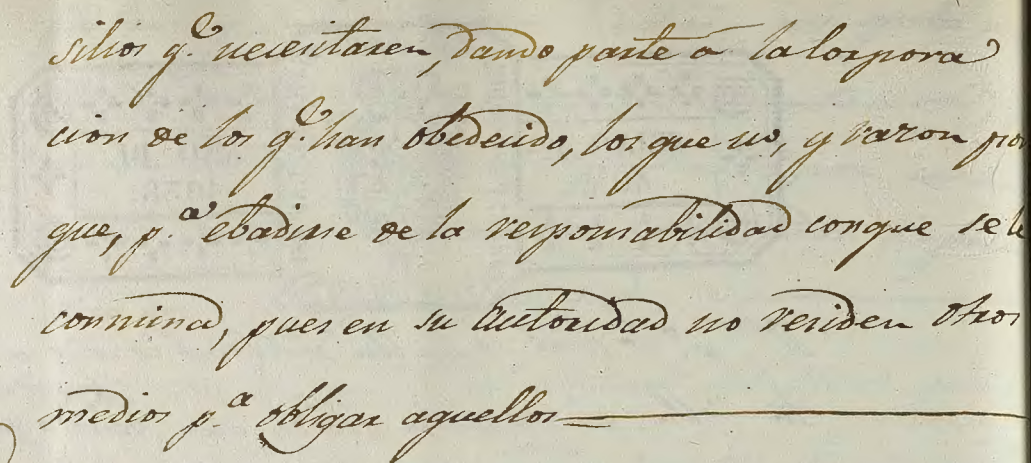 silios q.e necesitaren, dando parte á la Corpora
cion de los q.e han obedecido, los que no, y razon por
que, p.a ebadirse de la responsabilidad conque se le
conmina, pues en su autoridad no residen otros
medios p.a obligar aquellos=